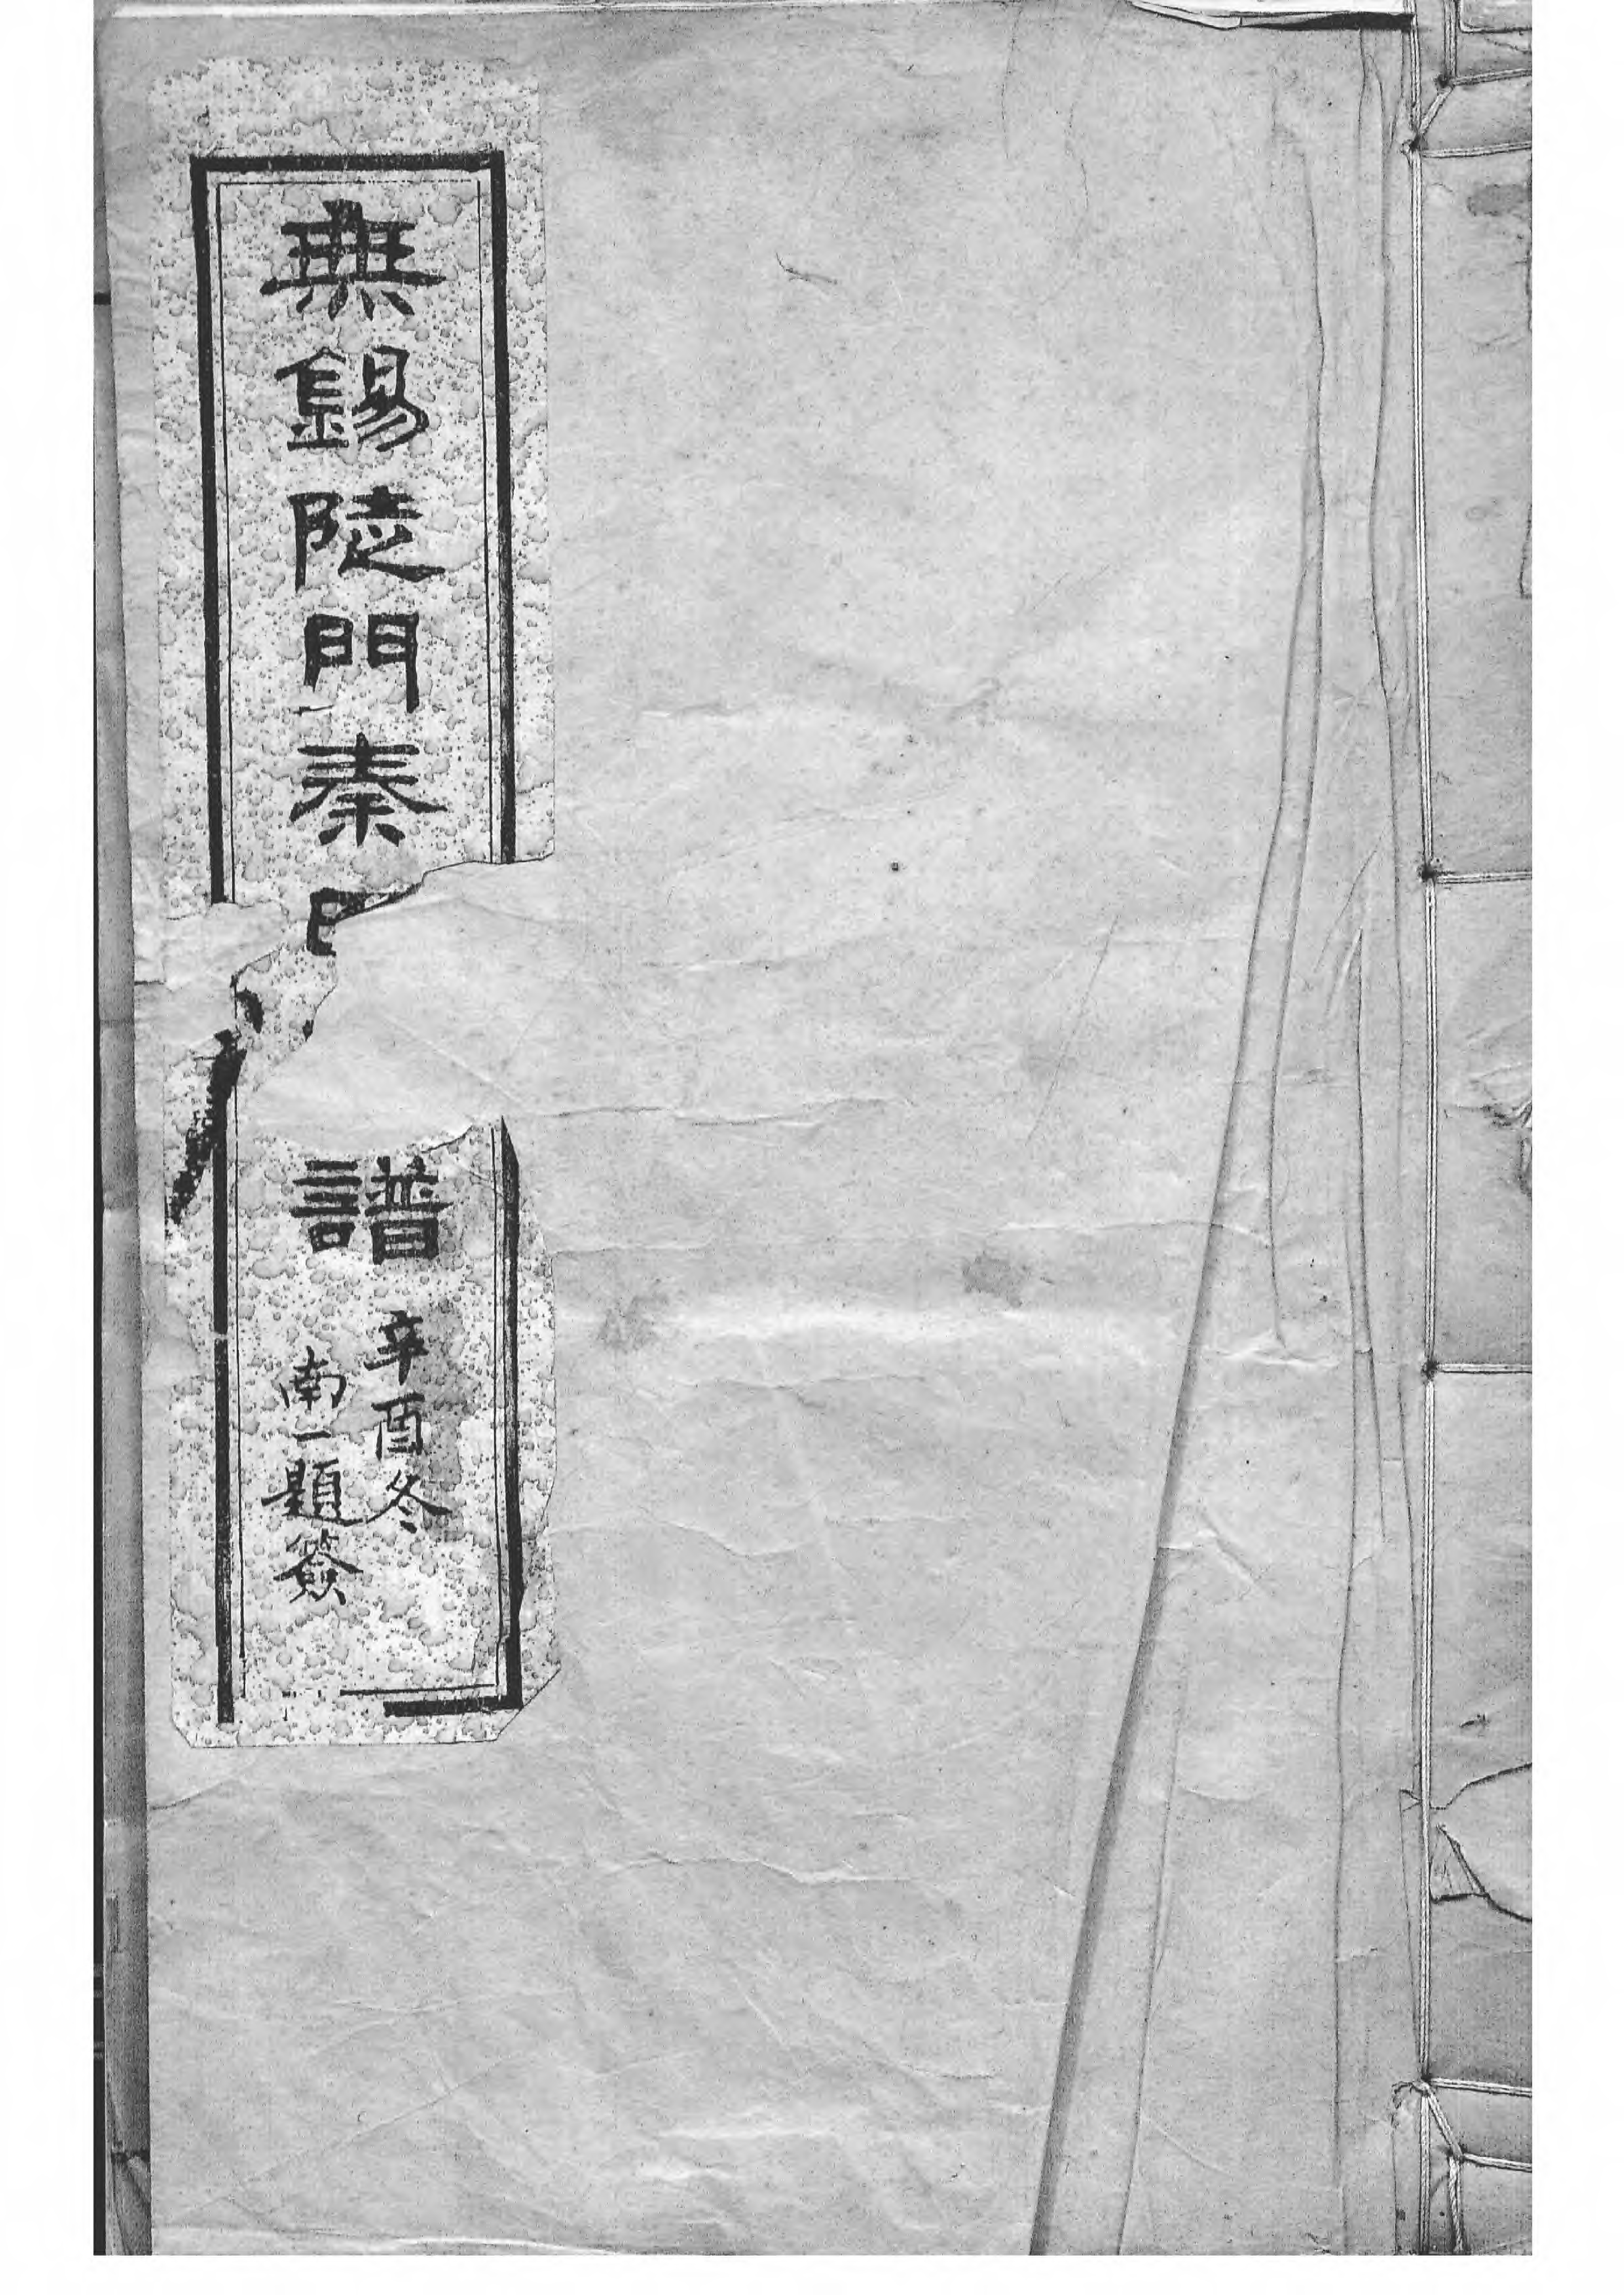 無錫陡門秦
譜
辛酉冬
南一題簽